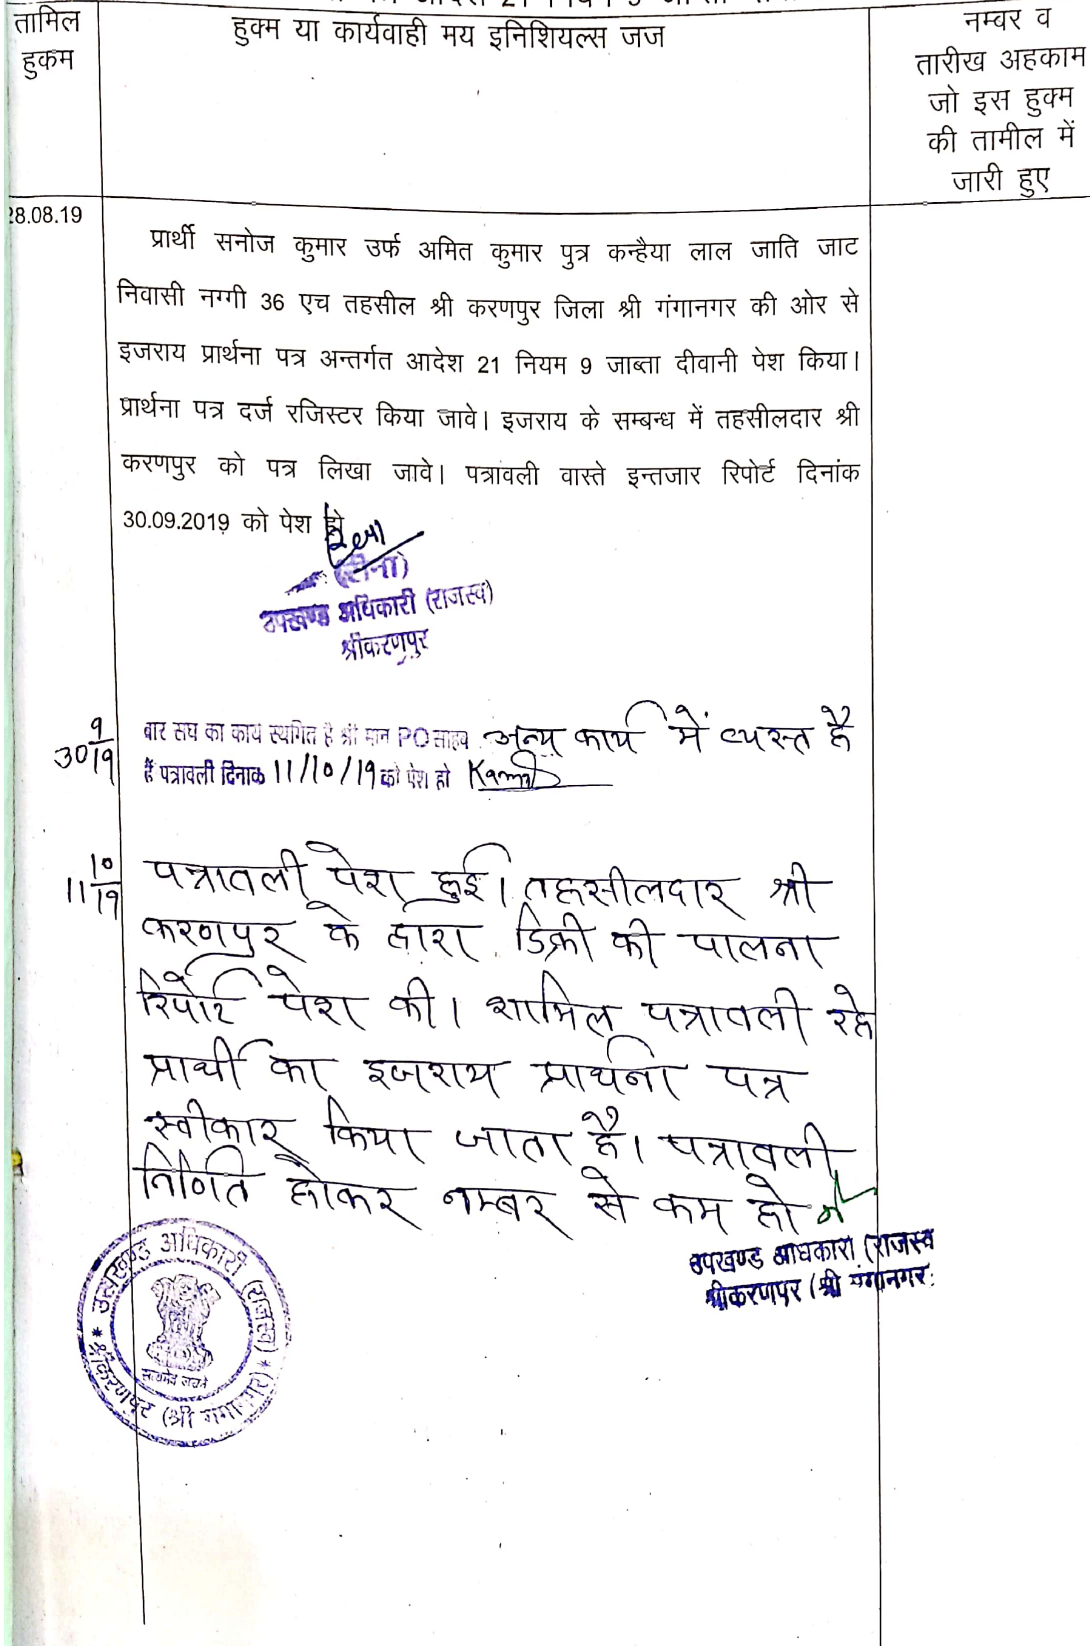 तामिल
हुकम
हुक्म या कार्यवाही मय इनिशियल्स जज
नम्बर व
तारीख अहकाम
जो इस हुक्म
की तामील में
जारी हुए
28.08.19
प्रार्थी सनोज कुमार उर्फ अमित कुमार पुत्र कन्हैया लाल जाति जाट
निवासी नग्गी 36 एच तहसील श्री करणपुर जिला श्री गंगानगर की ओर से
इजराय प्रार्थना पत्र अन्तर्गत आदेश 21 नियम 9 जाब्ता दीवानी पेश किया।
प्रार्थना पत्र दर्ज रजिस्टर किया जावे। इजराय के सम्बन्ध में तहसीलदार श्री
करणपुर को पत्र लिखा जावे। पत्रावली वास्ते इन्तजार रिपोर्ट दिनांक
30.09.2019 को पेश हो
(रीना)
उपखण्ड अधिकारी (राजस्व)
श्रीकरणपुर
30/9/19
बार संघ का कार्य स्थगित है श्री मान PO साहब अन्य कार्य में व्यस्त है
हैं पत्रावली दिनांक 11/10/19 को पेश हो
11/10/19
पत्रावली पेश हुई। तहसीलदार श्री
करणपुर के द्वारा डिक्री की पालना
रिपोर्ट पेश की। शामिल पत्रावली रहे
प्रार्थी का इजराय प्रार्थना पत्र
स्वीकार किया जाता है। पत्रावली
निर्णित होकर नम्बर से कम हो
उपखण्ड अधिकारी (राजस्व
श्रीकरणपुर (श्री गंगानगर)
उपखण्ड अधिकारी (राजस्व)
सत्यमेव जयते
श्रीकरणपुर (श्री गंगानगर)